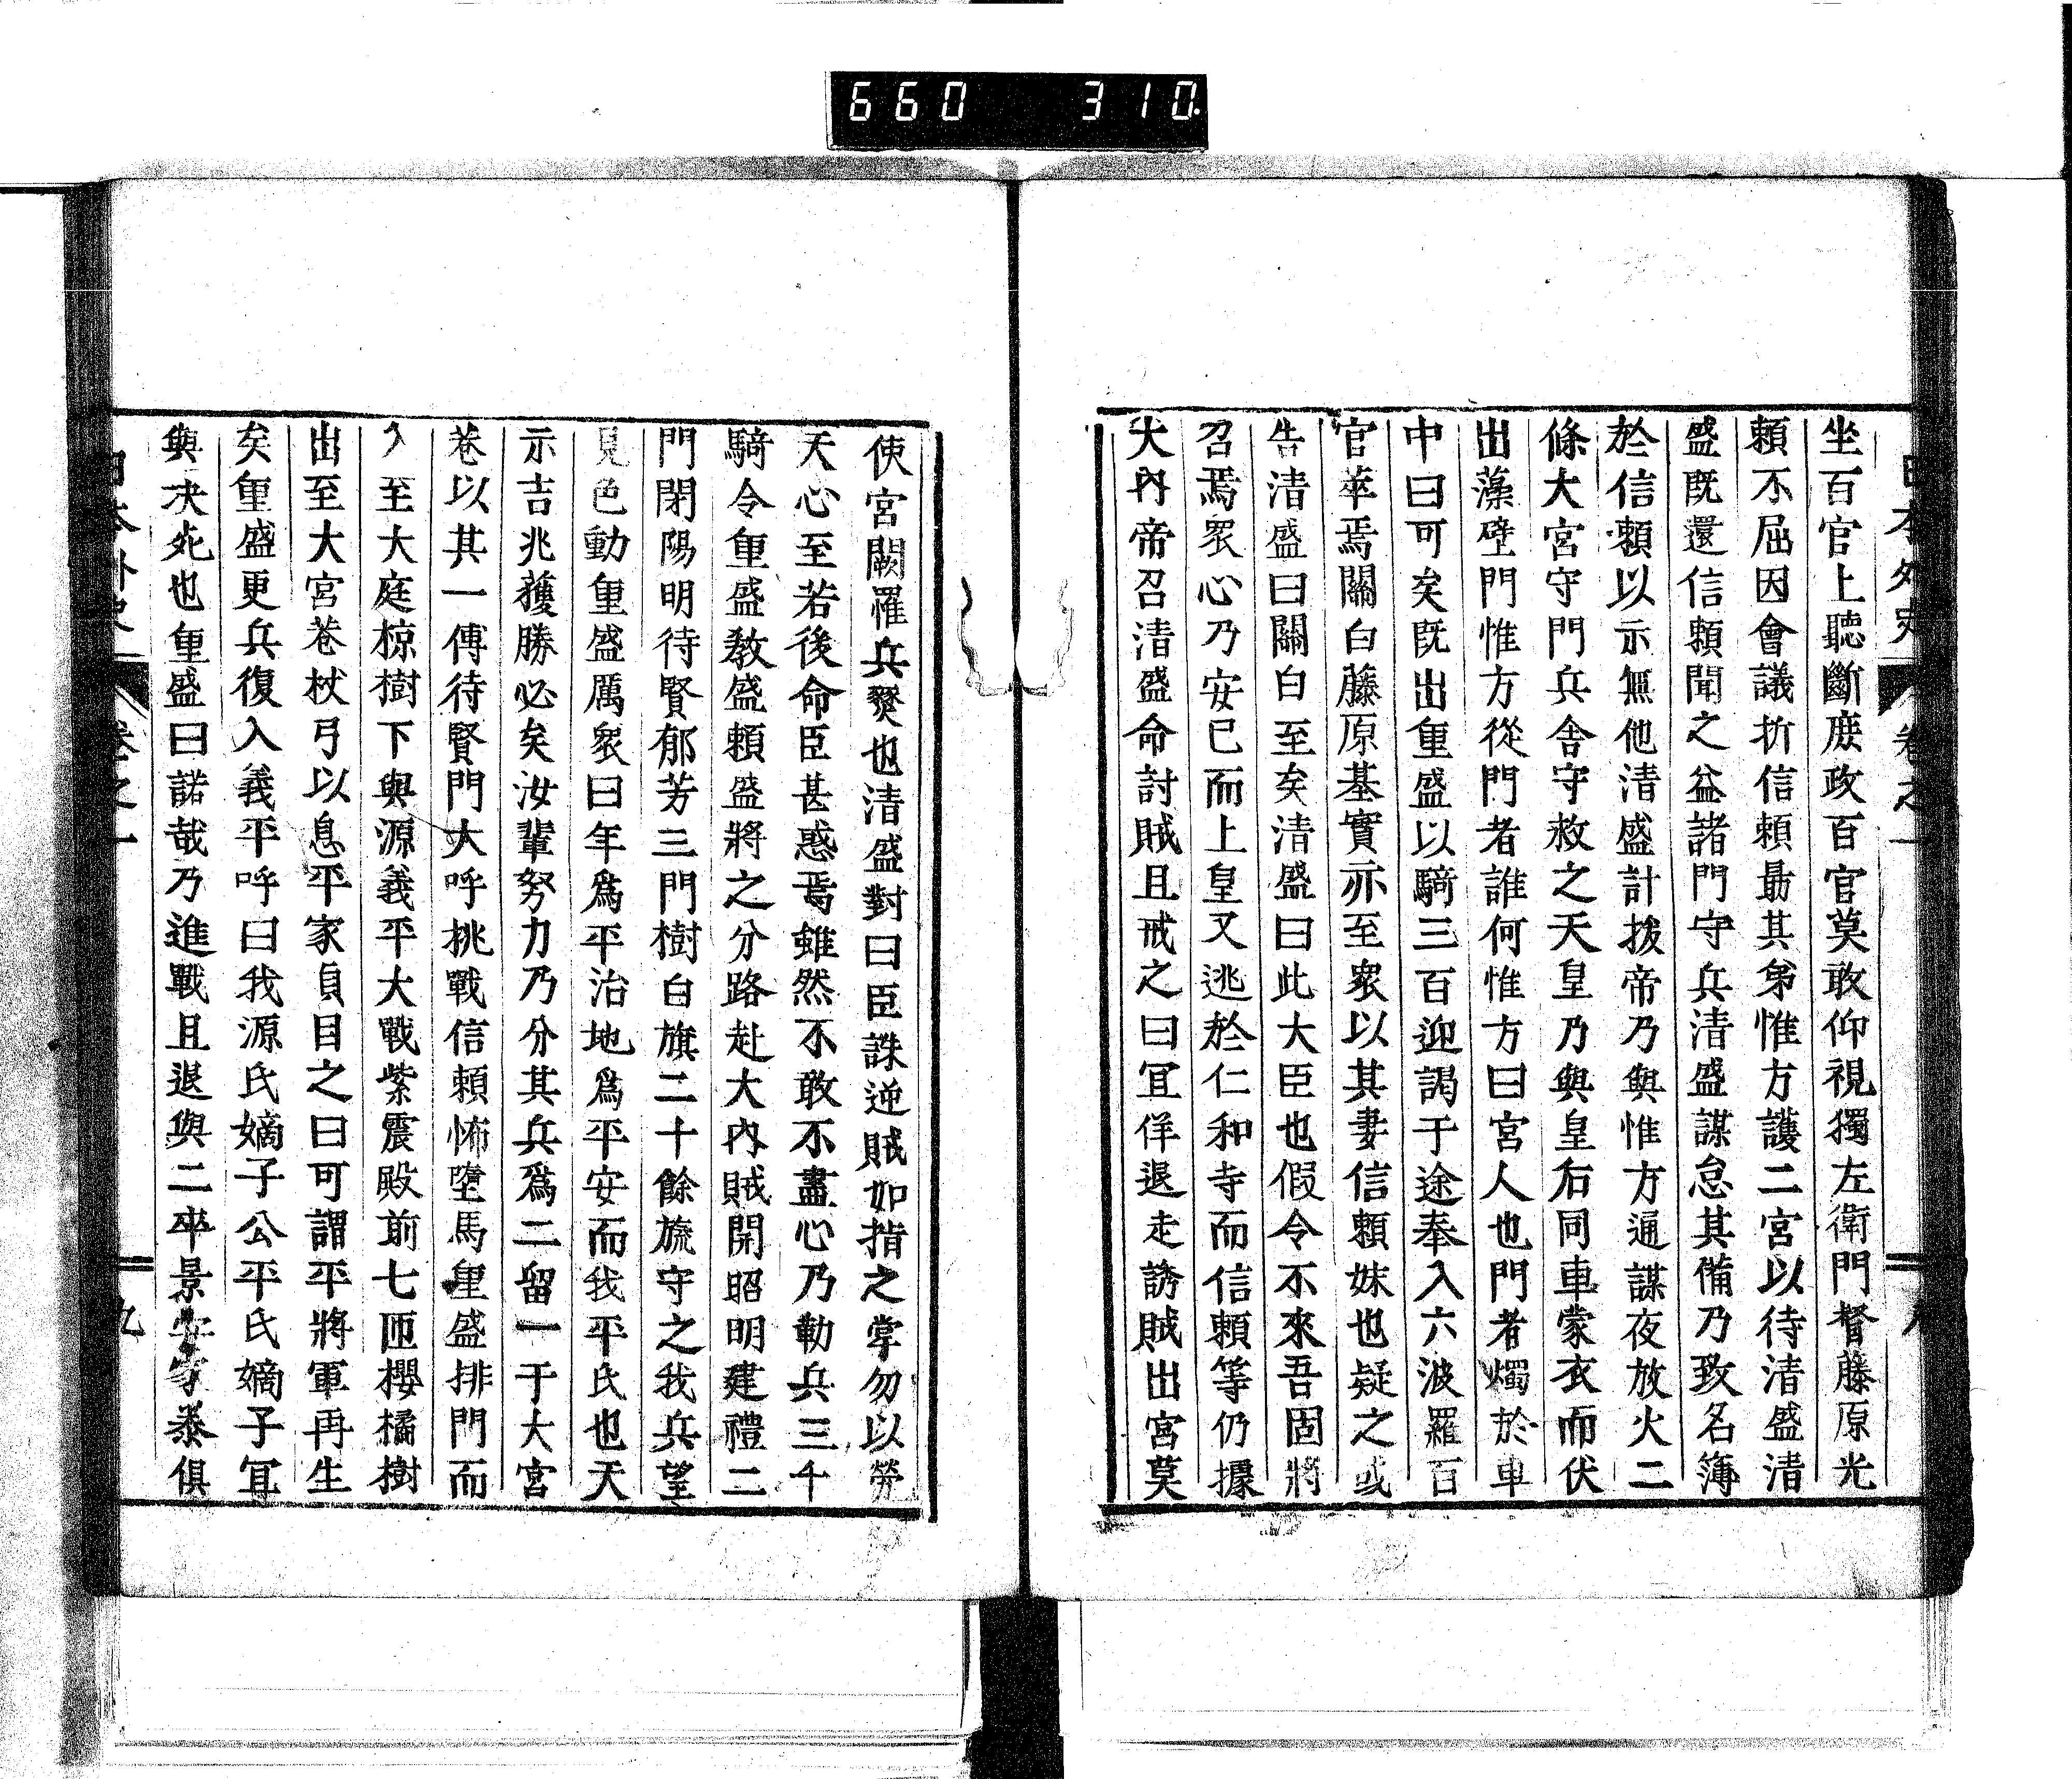 660 310.
日本外史 卷之一
坐百官上聽斷庶政百官莫敢仰視獨左衛門督藤原光
賴不屈因會議折信賴勗其弟惟方護二宮以待清盛清
盛既還信賴聞之益諸門守兵清盛謀怠其備乃致名簿
於信賴以示無他清盛計拨帝乃與惟方通謀夜放火二
條大宮守門兵舍守救之天皇乃與皇后同車蒙衣而伏
出藻壁門惟方從門者誰何惟方曰宮人也門者燭於車
中曰可矣既出重盛以騎三百迎謁于途奉入六波羅百
官萃焉關白藤原基實亦至衆以其妻信賴妹也疑之或
告清盛曰關白至矣清盛曰此大臣也假令不來吾固將
召焉衆心乃安已而上皇又逃於仁和寺而信賴等仍據
大內帝召清盛命討賊且戒之曰宜佯退走誘賊出宮莫
使宮闕罹兵燹也清盛對曰臣誅逆賊如指之掌勿以勞
天心至若後命臣甚惑焉雖然不敢不盡心乃勒兵三千
騎令重盛敎盛賴盛將之分路赴大內賊開昭明建禮二
門閉陽明待賢郁芳三門樹白旗二十餘旒守之我兵望
見色動重盛厲衆曰年爲平治地爲平安而我平氏也天
示吉兆獲勝必矣汝輩努力乃分其兵爲二留一于大宮
巷以其一傅待賢門大呼挑戰信賴怖墮馬重盛排門而
入至大庭椋樹下與源義平大戰紫震殿前七匝櫻橘樹
出至大宮巷杖弓以息平家貞目之曰可謂平將軍再生
矣重盛更兵復入義平呼曰我源氏嫡子公平氏嫡子宜
與决死也重盛曰諾哉乃進戰且退與二卒景安家泰俱
日本外史 卷之一 九